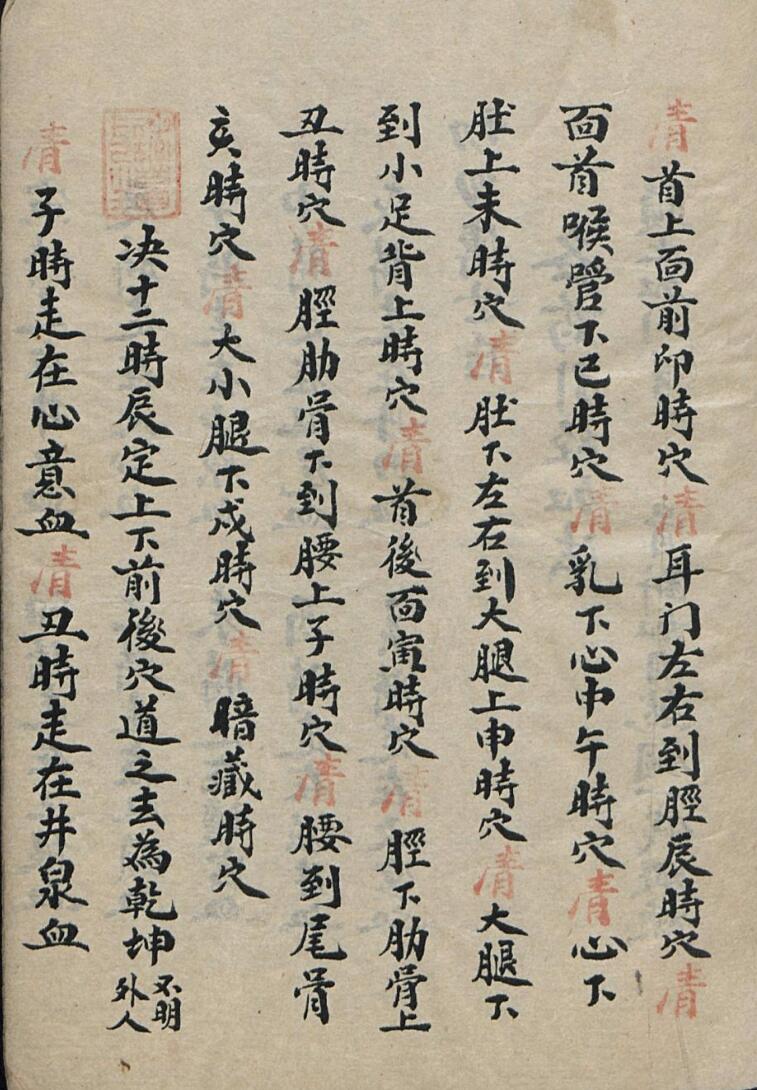 清首上面前卯時穴清耳门左右到脛辰時穴清
面首喉管下巳時穴清乳下心中午時穴清心下
肚上未時穴清肚下左右到大腿上申時穴清大腿下
到小足背上時穴清首後面寅時穴清脛下肋骨上
丑時穴清脛肋骨下到腰上子時穴清腰到尾骨
亥時穴清大小腿下戌時穴清暗藏時穴
决十二時辰定上下前後穴道之去為乾坤不明外人
清子時走在心意血清丑時走在井泉血